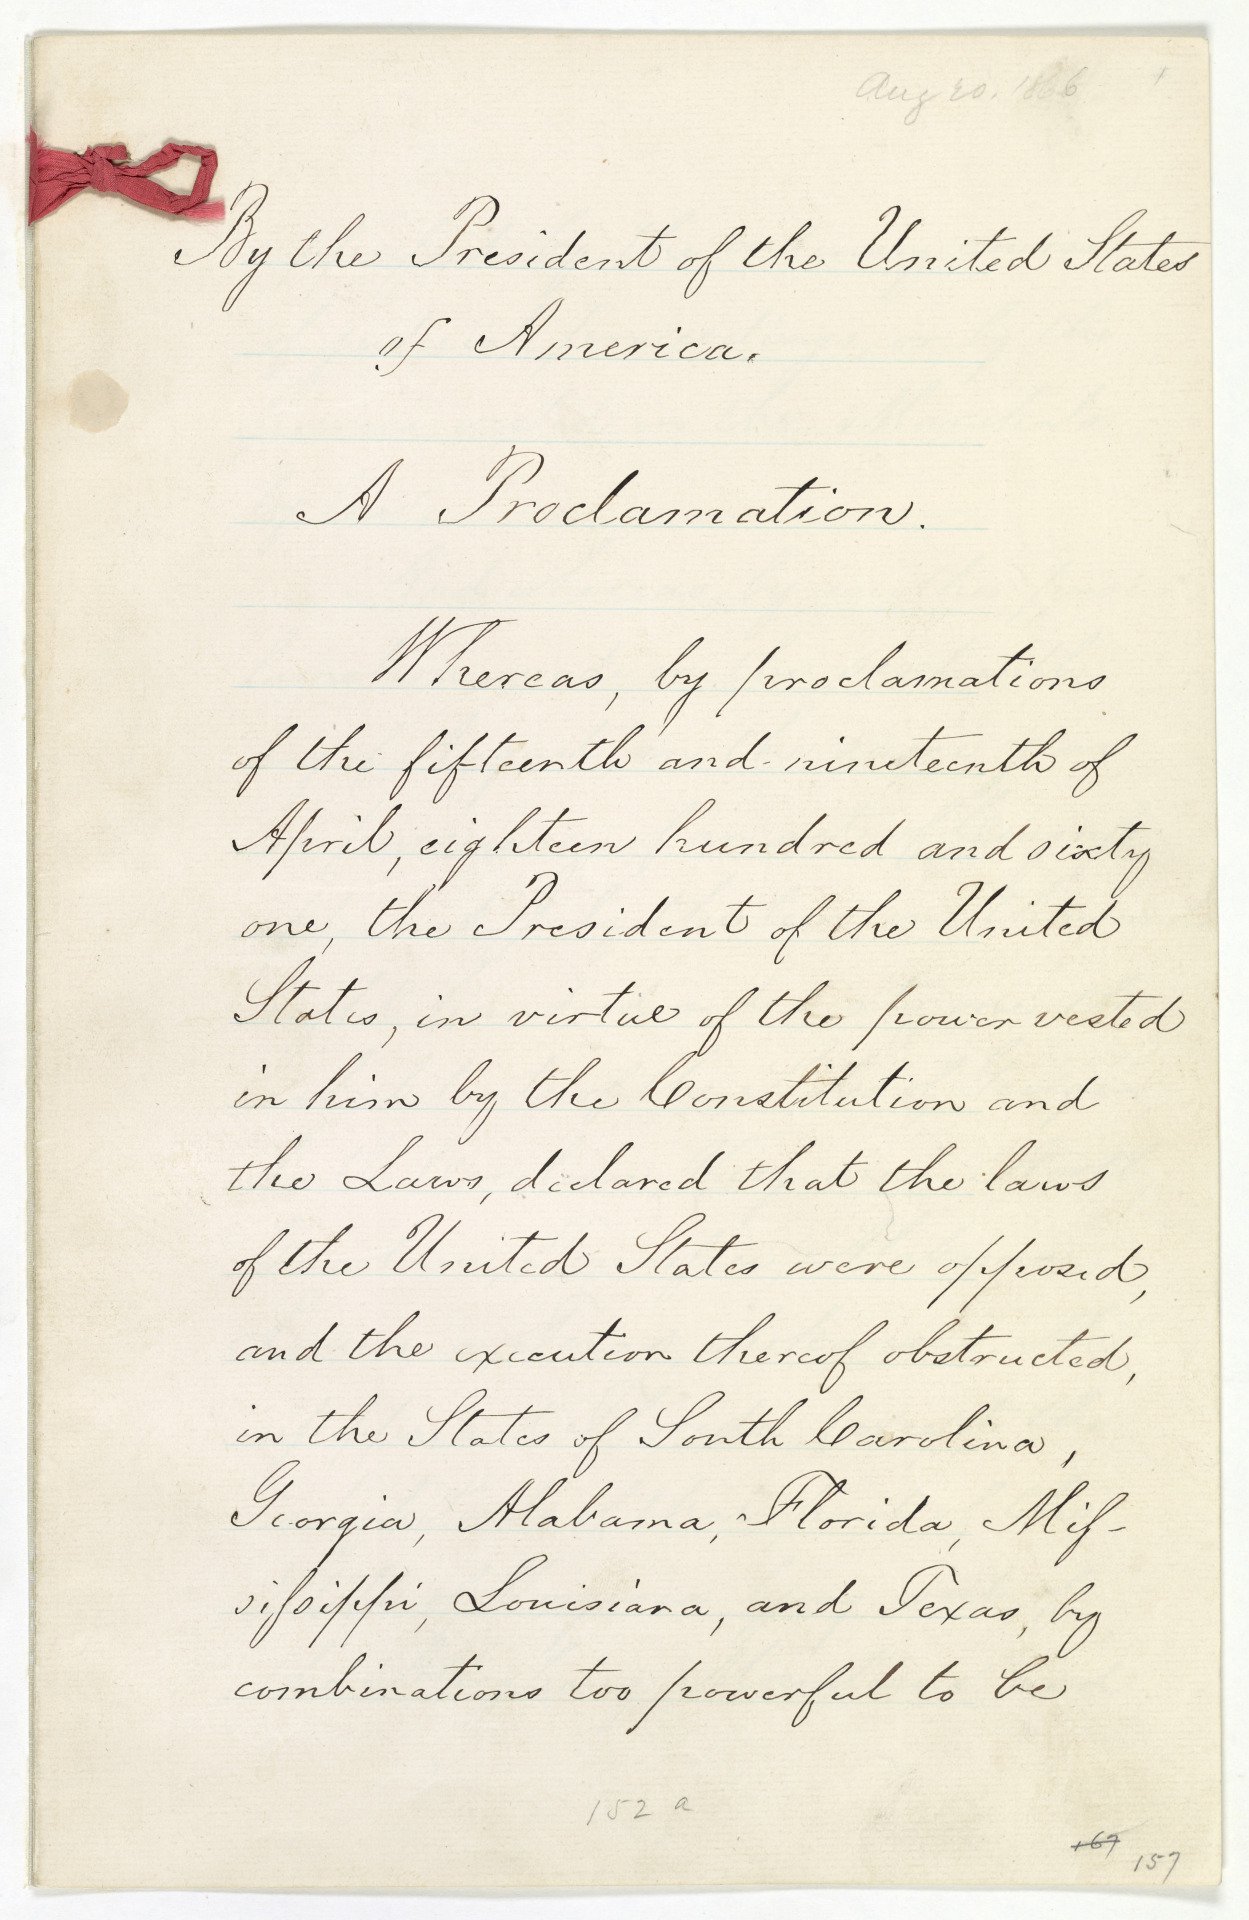 Aug 20. 1866
By the President of the United States
of America.
A Proclamation.
Whereas, by proclamations
of the fifteenth and nineteenth of
April, eighteen hundred and sixty
one, the President of the United
States, in virtue of the power vested
in him by the Constitution and
the Laws, declared that the laws
of the United States were opposed,
and the execution thereof obstructed,
in the States of South Carolina,
Georgia, Alabama, Florida, Mis-
sissippi, Louisiana, and Texas, by
combinations too powerful to be
152 a
167
157